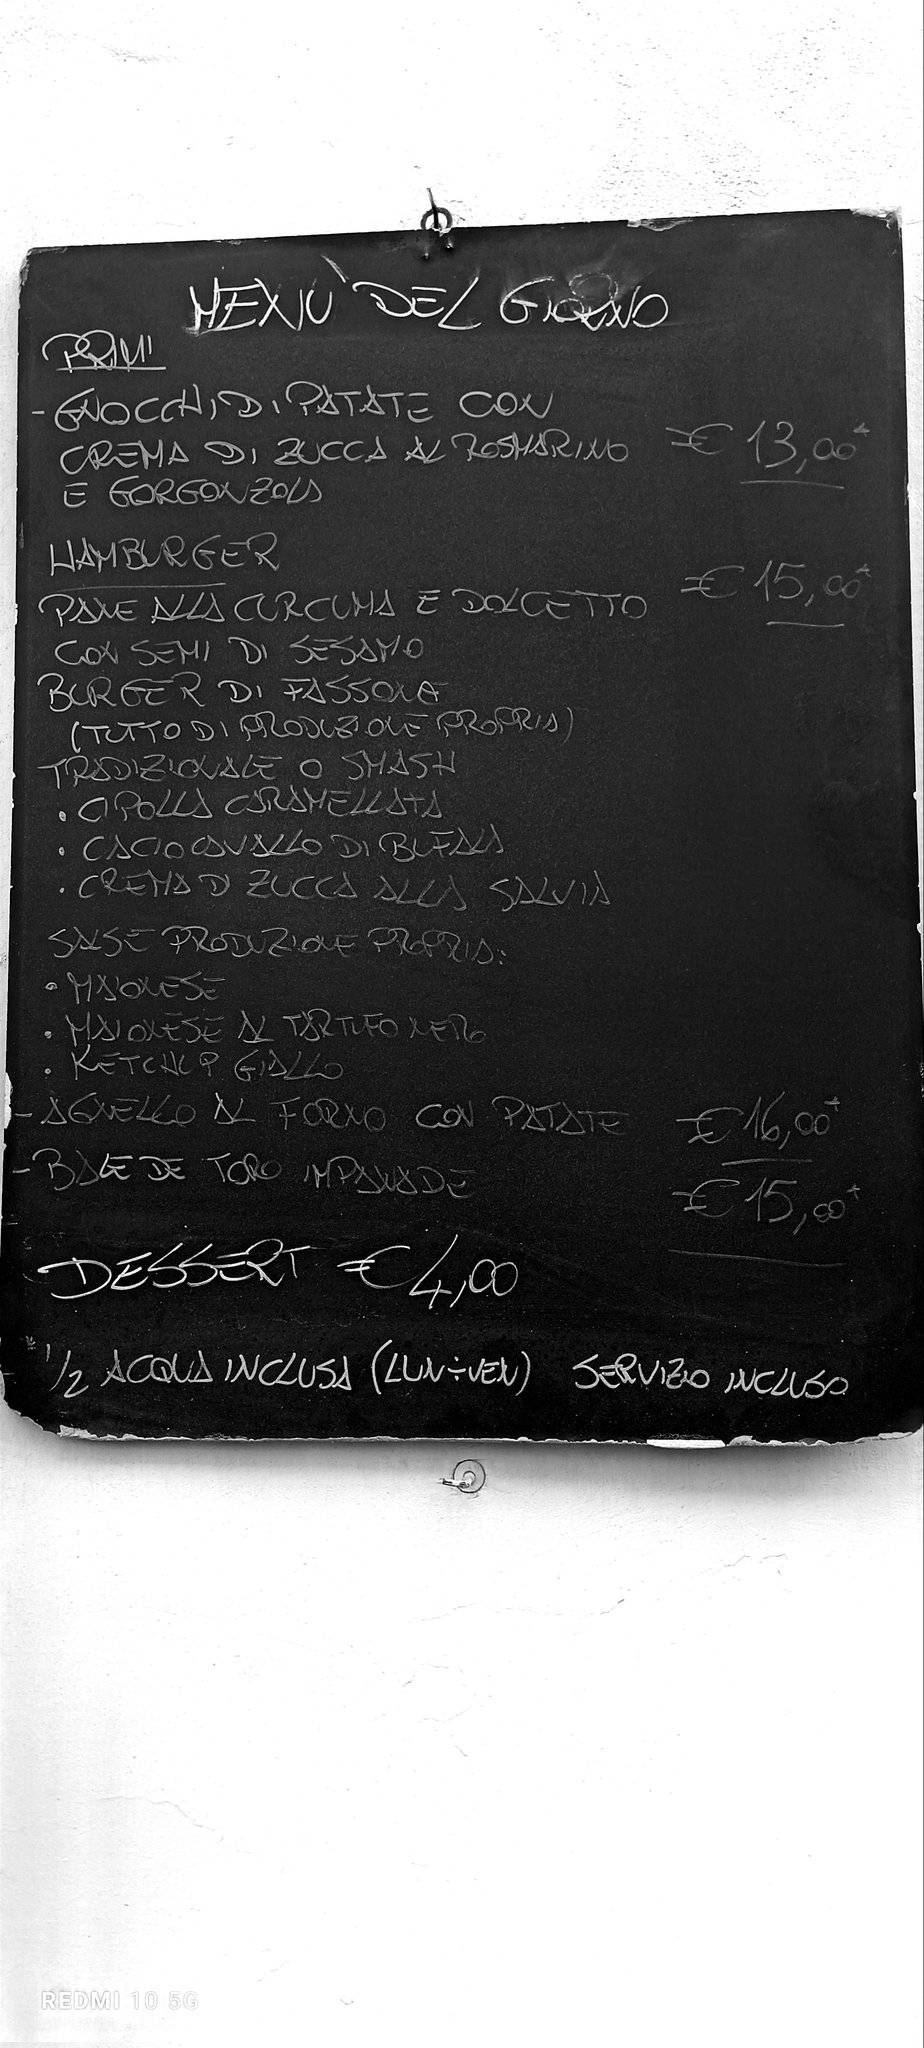 MENU' DEL GIORNO
PRIMI
- GNOCCHI DI PATATE CON
CREMA DI ZUCCA AL ROSMARINO € 13,00*
E GORGONZOLA
HAMBURGER € 15,00*
PANE ALLA CURCUMA E DOLCETTO
CON SEMI DI SESAMO
BURGER DI FASSONA
(TUTTO DI PRODUZIONE PROPRIA)
TRADIZIONALE O SMASH
• CIPOLLA CARAMELLATA
• CACIOCAVALLO DI BUFALA
• CREMA DI ZUCCA ALLA SALVIA
SALSE PRODUZIONE PROPRIA:
• MAIONESE
• MAIONESE AL TARTUFO NERO
• KETCHUP GIALLO
- AGNELLO AL FORNO CON PATATE € 16,00*
- BALE DE TORO IMPANADE € 15,00*
DESSERT € 4,00
* 1/2 ACQUA INCLUSA (LUN÷VEN) SERVIZIO INCLUSO
REDMI 10 5G